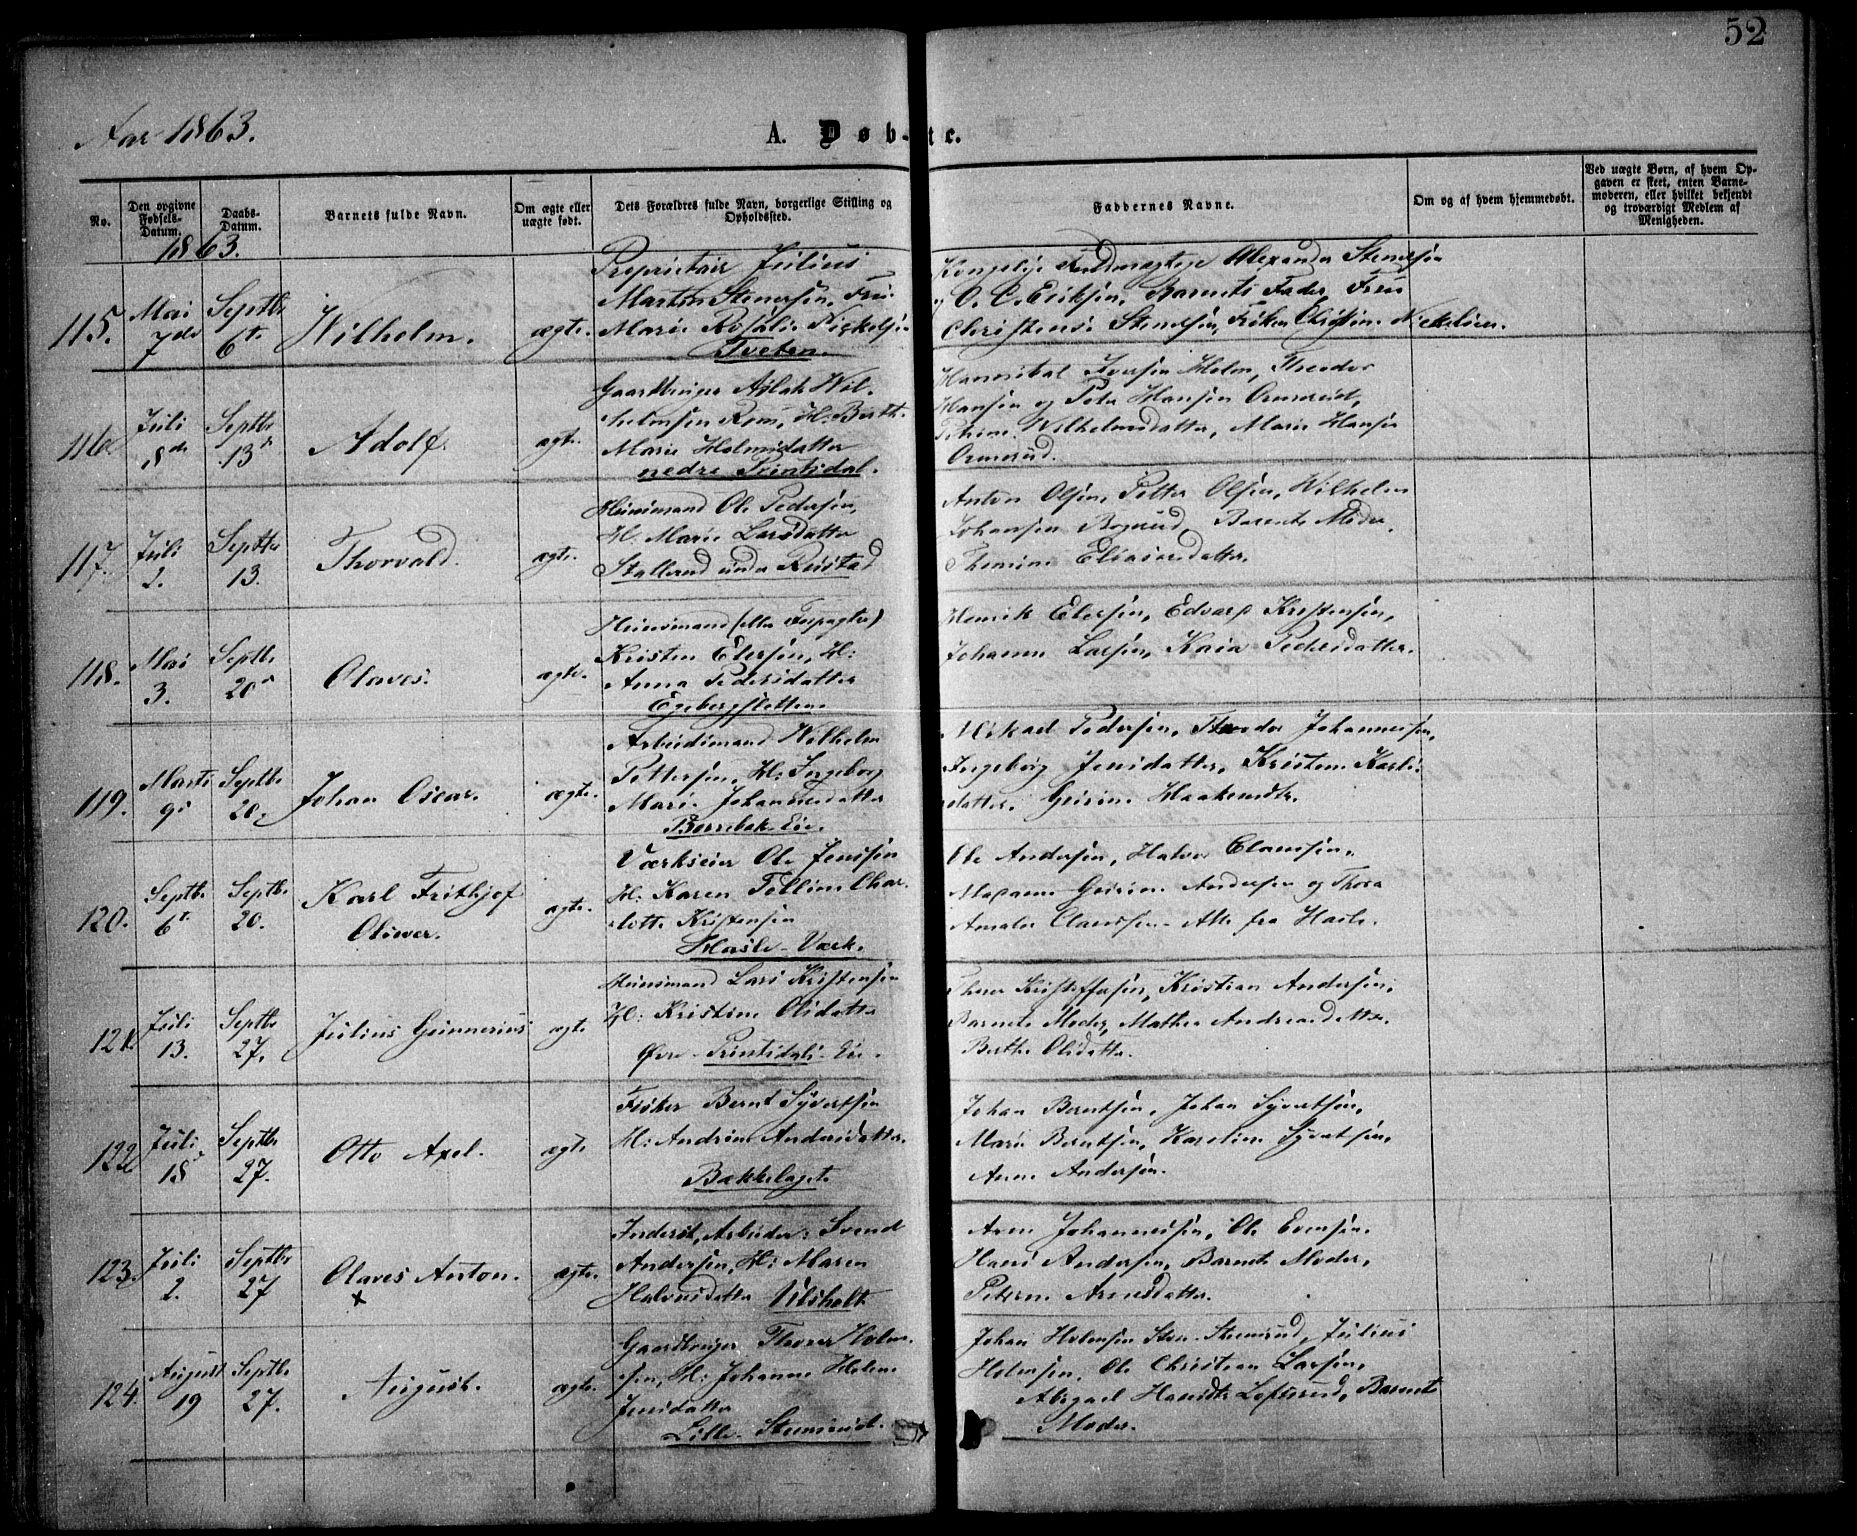 52
Aar 1863.
A. Døb-te.
No.
Den opgivne Fødsels-Datum.
Daabs-Datum.
Barnets fulde Navn.
Om ægte eller uægte født.
Dets Forældres fulde Navn, borgerlige Stilling og Opholdssted.
Faddernes Navne.
Om og af hvem hjemmedøbt.
Ved uægte Børn, af hvem Opgaven er skeet, enten Barnemoderen, eller hvilket bekjendt og troværdigt Medlem af Menigheden.
1863.
115. Mai 7de Septbr 6te Wilhelm. ægte.
Proprietair Julius
Marton Stenersen, Fru
Marie Rosalie
Tveten.
Kongelige Fuldmægtige Alexander Stenersen
O. C. Eriksen, Barnets Fader, Frue
Stenersen, Frøken
116. Juli 8de Septbr 13de Adolf. ægte.
Gaardbruger Aslak Wil-
helmsen Rom, H: Berth.
Marie Holmsdatter
nedre Prinsdal.
Hannibal Iversen Holm, Theodor
Hansen og Peter Hansen Ormerud,
Wilhelmsdatter, Marie Hansen
Ormerud.
117. Juli 2. Septbr 13. Thorvald. ægte.
Huusmand Ole Pedersen,
H. Marie Larsdatter
under
Anton Olsen, Petter Olsen, Wilhelm
Johansen Bogerud, Barnets Moder,
Eliasdatter.
118. Mai 3. Septbr. 20de Olaves. ægte.
Huusmand (eller Forpagter)
Kristen Elersen, H:
Anna Pedersdatter
Egebergsletten.
Henrik Elersen, Edvard Kristensen,
Johanne Larsen, Karia Pedersdatter.
119. Marts 9de Septbr. 20. Johan Oscar. ægte.
Arbeidsmand Wilhelm
Pettersen, H: Ingeborg
Marie Johannesdatter
Borrebæk Eie.
Mikael Pedersen, Theodor Johannessen,
Ingeborg Jensdatter, Kristine Karls
datter.
120. Septbr. 6te Septbr. 20. Karl Frithjof Oliver. ægte.
Værkseier Ole Jenssen
H: Karen Teline Char-
lotte Kristensen
Hasle-Værk.
Ole Andersen, Halvor Clausen,
Andersen og Thora
Amalie Clausen - Alle fra Hasle.
121. Juli 13. Septbr 27. Julius Gunnerius ægte
Huusmand Lars Kristensen
H: Kristine Olsdatter
Øvre Prinsdals-Eie.
Kristian Andersen,
Barnets Moder, Mathea Andreasdatter.
Berthe Olsdatter.
122. Juli 18. Septbr 27. Otto Axel. ægte.
Fisker Bernt Syvertsen
H: Andrine Andersdatter.
Bækkelaget
Johan Berntsen, Johan Syvertsen,
Marie Berntsen, Karoline Syvertsen,
Anne Andersen.
123. Juli 2. Septbr 27 Olaves Anton. x ægte.
Inderst, Arbeider: Svend
Andersen, H: Maren
Halvorsdatter Ulsholt
Aren Johannessen, Ole Evensen.
Hans Andersen, Barnets Moder,
Arensdatter.
124. August 19 Septbr. 27. August. ægte.
Gaardbruger Thorer Holm-
sen, H: Johanne Helene
Jensdatter
Lille Steensrud.
Johan Holmsen Store Steensrud, Julius
Holmsen, Ole Christian Larsen,
Abigael Lofsrud, Barnets
Moder.